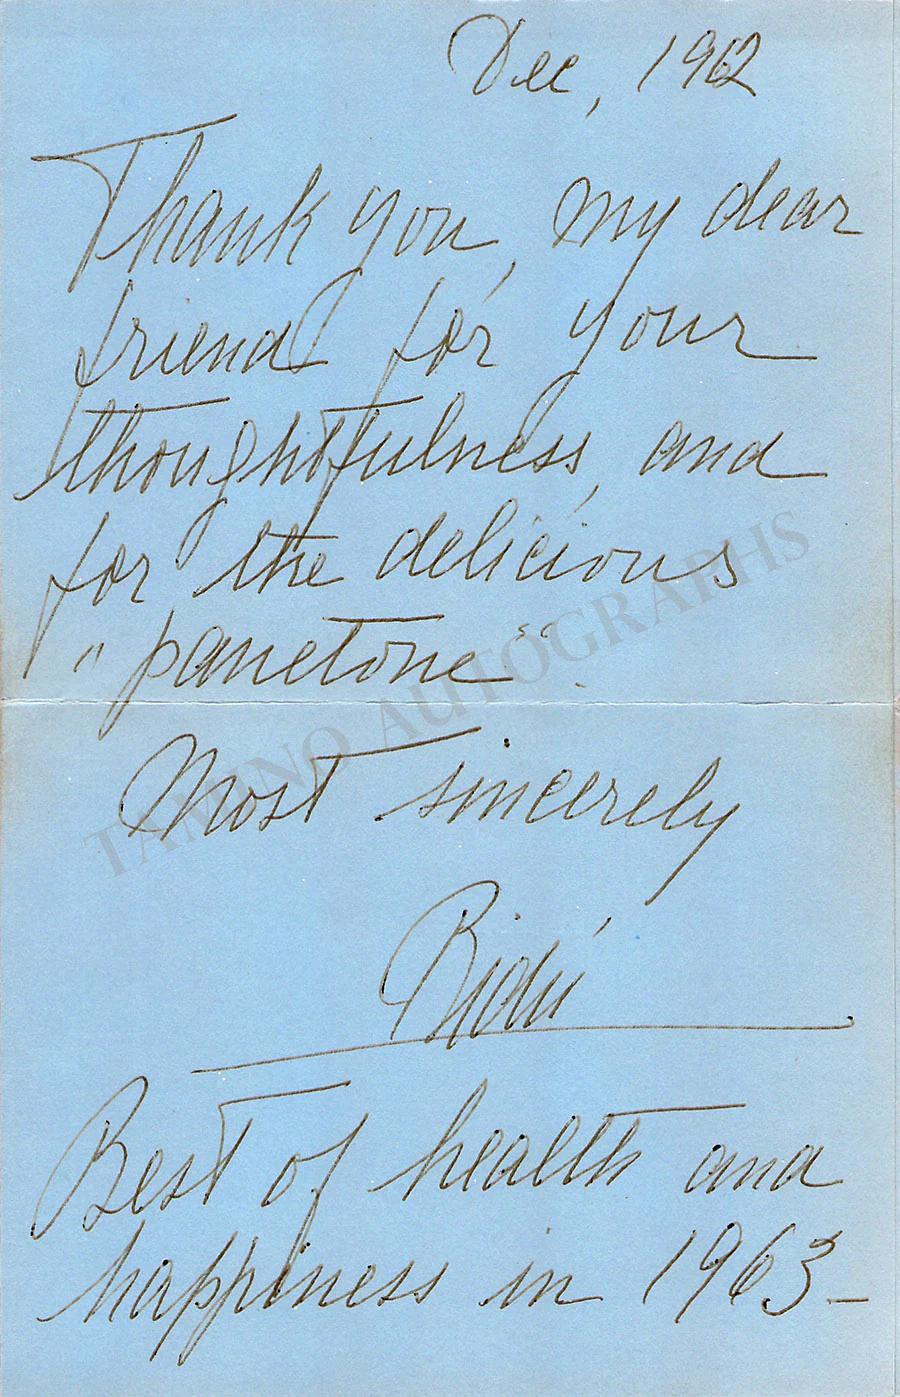 Dec, 1962
Thank you, my dear
friend for your
thoughtfulness, and
for the delicious
"panetone".
Most sincerely
Bidú
Best of health and
happiness in 1963-
TAMINO AUTOGRAPHS